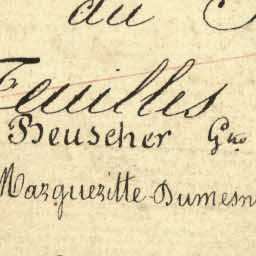 du
Feuilles
Heuscher Gno
Margueritte Dumesn